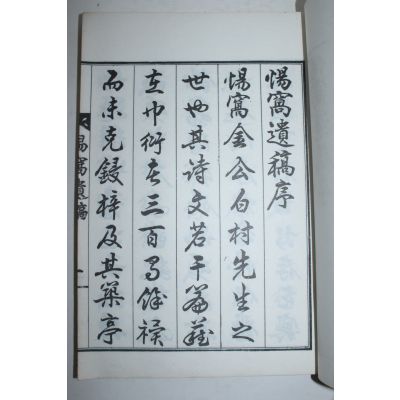 惕窩遺稿序
惕窩金公白村先生之
世也其詩文若干篇蔵
在巾衍者三百有餘禩
而未克鋟梓及其築亭
惕窩遺稿
一